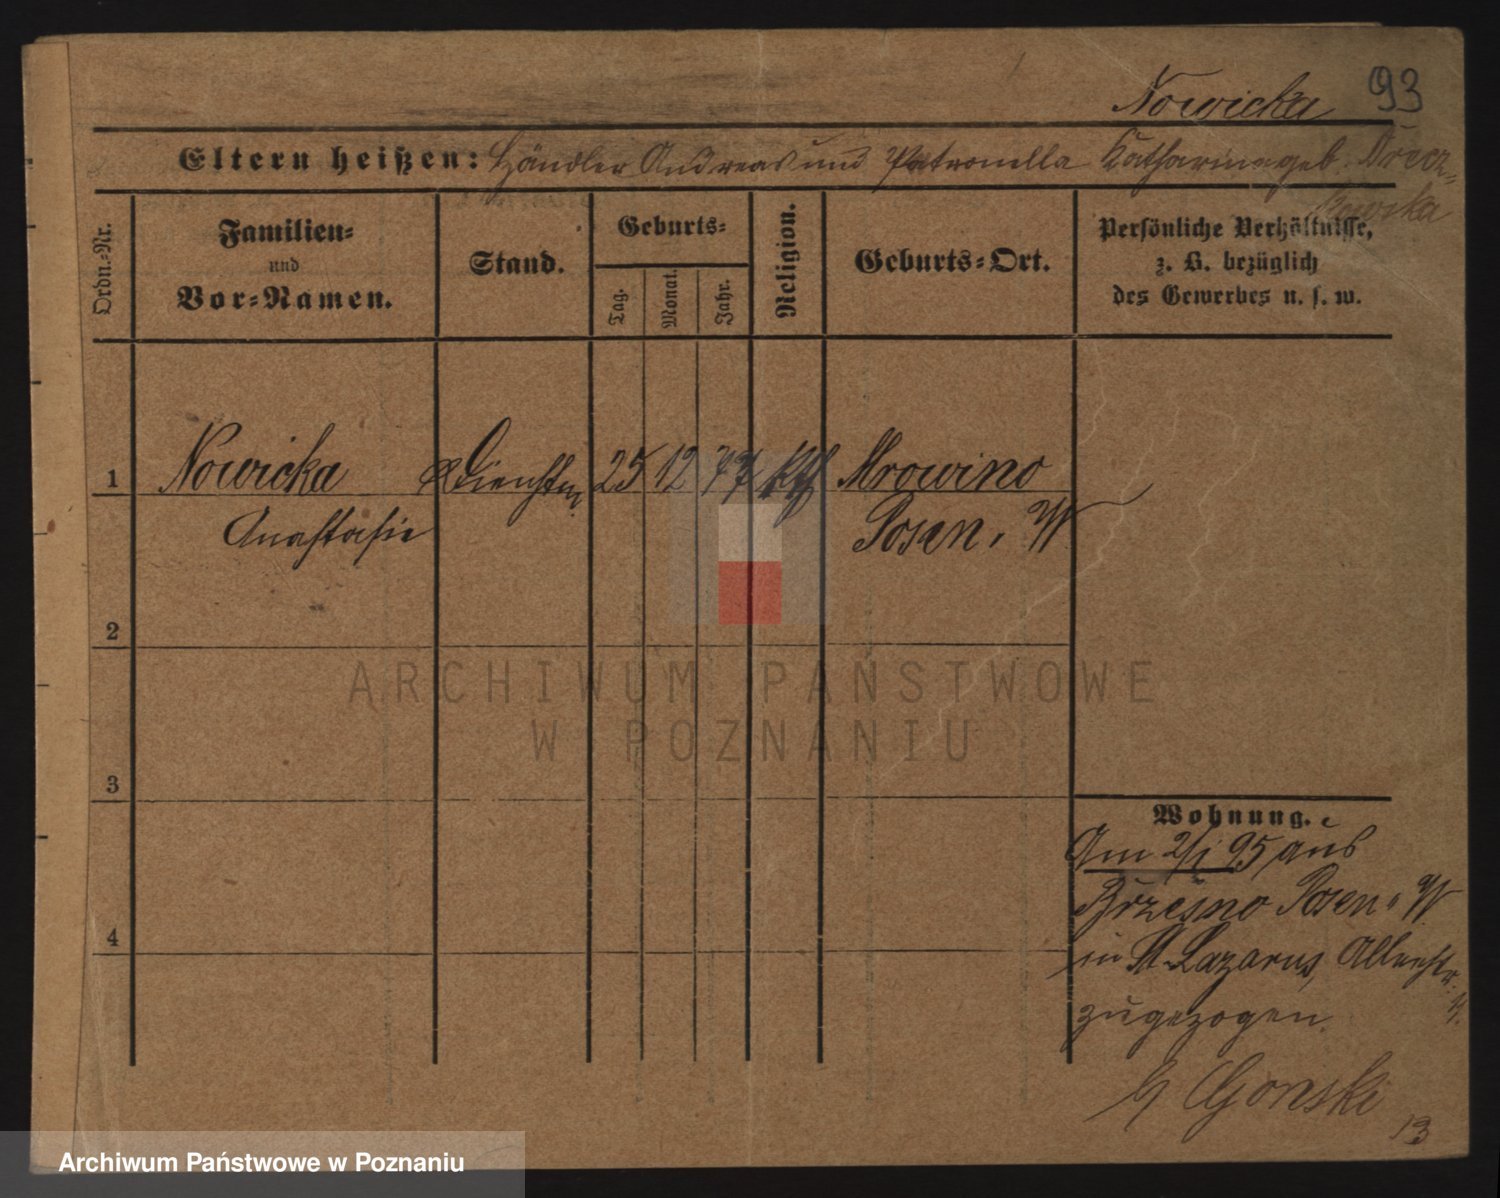 Nowicka 93
Eltern heißen: Händler Andreas und Patronella Katharina geb.
Ordn.-Nr.
Familien-
und
Vor-Namen.
Stand.
Geburts-
Tag.
Monat.
Jahr.
Religion.
Geburts-Ort.
Persönliche Verhältnisse,
z. B. bezüglich
des Gewerbes u. s. w.
1 Nowicka Dienstm. 25 12 77 kth Mrowino
Anastasie Posen, W
2
3
4
Wohnung.
Am 2/1 95 aus
Brzesno Posen W
in St. Lazarus, Albrechtstr.
zugezogen.
Gonski
13
ARCHIWUM PAŃSTWOWE
W POZNANIU
Archiwum Państwowe w Poznaniu